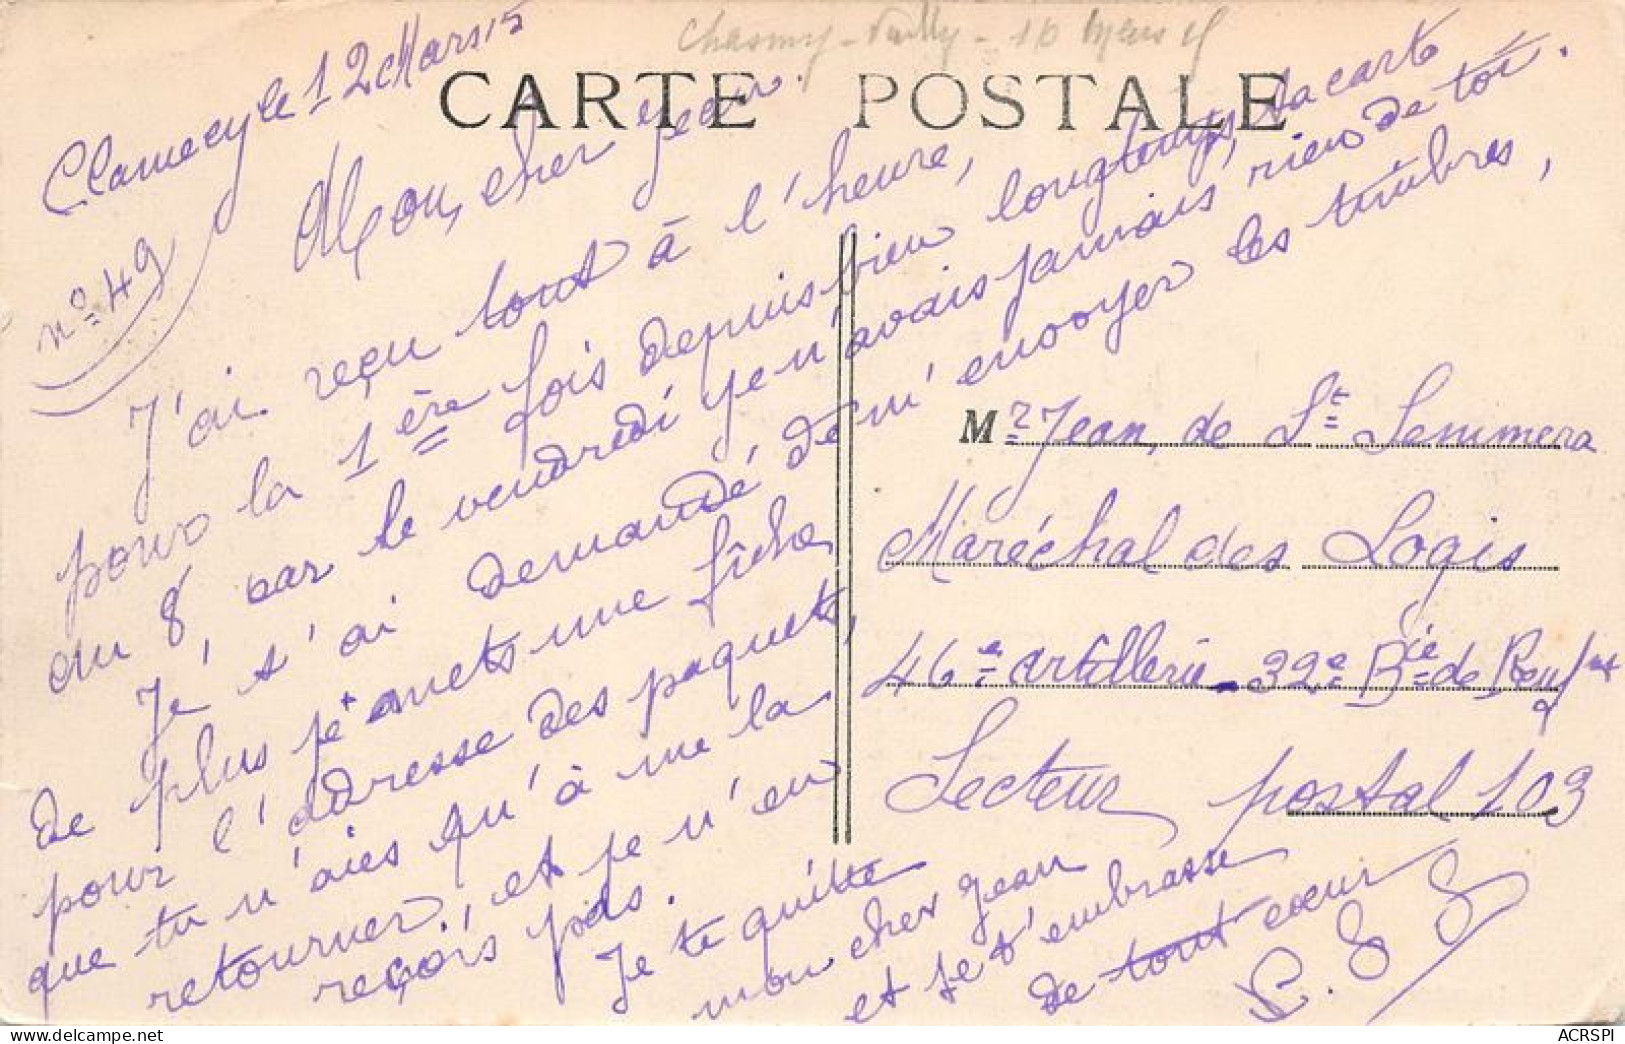 Clamecy le 12 Mars 15
CARTE POSTALE
n° 49
Mon cher Jean.
J'ai reçu tout à l'heure,
pour la 1ère fois depuis bien longtemps, ta carte
du 8, car le vendredi je n'avais jamais rien de toi.
Je t'ai demandé de m'envoyer les timbres,
de plus je mets une fiche
pour l'adresse des paquets,
que tu n'aies qu'à me la
retourner, et je n'en
reçois pas.
Je te quitte
mon cher Jean
et je t'embrasse
de tout cœur
Mr Jean de St
Maréchal des Logis
46e artillerie 32e Bie de
Secteur postal 103
ACRSPI